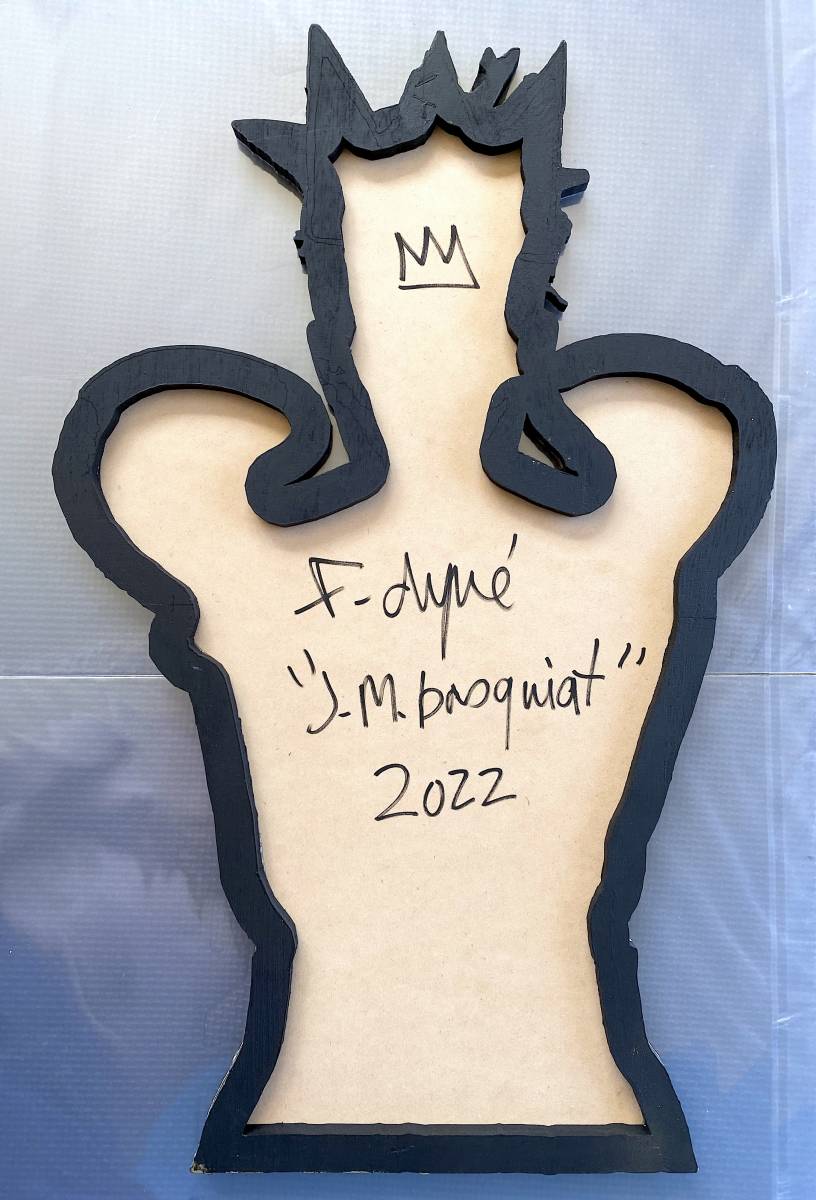 F-dyné
"J.M. basquiat"
2022